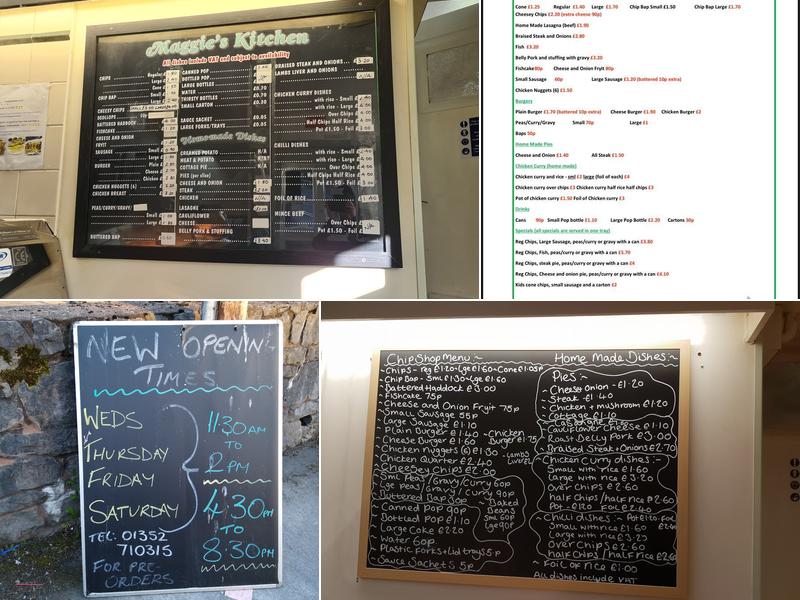 Maggie's Kitchen
All dishes include VAT and subject to availability
CHIPS
Regular
Large
Cone
CHIP BAP
Small
Large
CHEESY CHIPS
BATTERED HADDOCK
FISHCAKE
CHEESE AND ONION
FRYIT
SAUSAGE
Small
Large
BURGER
Plain
Cheese
Chicken
CHICKEN NUGGETS (6)
CHICKEN BREAST
PEAS/CURRY/GRAVY
Small
Large
BUTTERED BAP
CANNED POP
BOTTLED POP
LARGE BOTTLES
WATER
THIRSTY BOTTLES
SMALL CARTON
SAUCE SACHET
LARGE FORKS/TRAYS
Homemade Dishes
CREAMED POTATO
MEAT & POTATO
COTTAGE PIE
PIES (per slice)
CHEESE AND ONION
STEAK
CHICKEN
LASAGNE
CAULIFLOWER
CHEESE
BELLY PORK & STUFFING
BRAISED STEAK AND ONIONS
LAMBS LIVER AND ONIONS
CHICKEN CURRY DISHES
with rice - Small
with rice - Large
Over Chips
Half Chips Half Rice
Pot £1.50 - Foil
CHILLI DISHES
with rice - Small
with rice - Large
Over Chips
Half Chips Half Rice
Pot £1.50 - Foil
FOIL OF RICE
MINCE BEEF
Over Chips
Pot £1.50 - Foil
Cone £1.25 Regular £1.40 Large £1.70 Chip Bap Small £1.50 Chip Bap Large £1.70
Cheesey Chips £2.20 (extra cheese 90p)
Home Made Lasagna (beef) £1.90
Braised Steak and Onions £2.80
Fish £3.20
Belly Pork and stuffing with gravy £3.20
Fishcake80p Cheese and Onion Fryit 80p
Small Sausage 60p Large Sausage £1.20 (battered 10p extra)
Chicken Nuggets (6) £1.50
Burgers
Plain Burger £1.70 (battered 10p extra) Cheese Burger £1.90 Chicken Burger £2
Peas/Curry/Gravy Small 70p Large £1
Baps 50p
Home Made Pies
Cheese and Onion £1.40 All Steak £1.50
Chicken Curry (home made)
Chicken curry and rice - sml £2 large (foil of each) £4
Chicken curry over chips £3 Chicken curry half rice half chips £3
Pot of chicken curry £1.50 Foil of Chicken curry £3
Drinks
Cans 90p Small Pop bottle £1.10 Large Pop Bottle £2.20 Cartons 30p
Specials (all specials are served in one tray)
Reg Chips, Large Sausage, peas/curry or gravy with a can £3.80
Reg Chips, Fish, peas/curry or gravy with a can £5.70
Reg Chips, steak pie, peas/curry or gravy with a can £4
Reg Chips, Cheese and onion pie, peas/curry or gravy with a can £4.10
Kids cone chips, small sausage and a carton £2
NEW OPENING
TIMES
WEDS
THURSDAY
FRIDAY
SATURDAY
11:30AM
TO
2PM
4:30PM
TO
8:30PM
TEL: 01352
710315
FOR PRE-
ORDERS
Chip Shop Menu:~
~Chips - reg £1.20 - Lge £1.60 - Cone £1.05p
~Chip Bap - Sml £1.30 - Lge £1.60
~Battered Haddock £3.00
~Fishcake 75p
~Cheese and Onion Fruit 75p
~Small Sausage 55p
~Large Sausage £1.10
~Plain Burger £1.40
~Chicken Burger £1.75
~Cheese Burger £1.60
~Chicken Nuggets (6) £1.30
~Lambs Liver
~Chicken Quarter £2.40
~Cheesey Chips £2.00
~Sml Peas/Gravy/Curry 60p
Lge Peas/Gravy/Curry 90p
~Buttered Bap 30p
~Baked Beans Sml 60p Lge 90p
~Canned Pop 90p
~Bottled Pop £1.10
~Large Coke £2.20
~Water 60p
~Plastic Forks + Lid trays 5p
~Sauce Sachets 5p
Home Made Dishes:~
Pies:~
~Cheese Onion - £1.20
~Steak - £1.40
~Chicken + mushroom £1.20
~Cottage £1.10
~Cauliflower Cheese £1.10
Roast Belly Pork £3.00
~Braised Steak + Onions £2.70
Chicken Curry dishes:~
Small with rice £1.60
Large with rice £3.20
Over Chips £2.60
half Chips/half rice £2.60
Pot - £1.20 Foil £2.40
~Chilli dishes:~ Pot £1.20 Foil
Small with rice £1.60
Large with rice £3.20
Over Chips £2.60
half Chips/half rice £2.60
~Foil of rice £1.00
All dishes include VAT